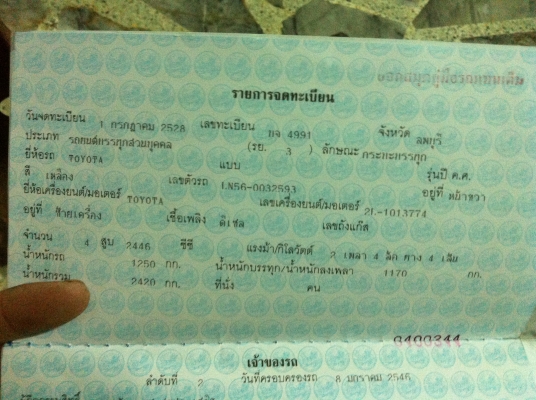 ออกสมุดคู่มือรถแทนเดิม
รายการจดทะเบียน
วันจดทะเบียน 1 กรกฎาคม 2528 เลขทะเบียน 4991 จังหวัด ลพบุรี
ประเภท รถยนต์บรรทุกส่วนบุคคล (รย. 3 ) ลักษณะ กระบะบรรทุก
ยี่ห้อรถ TOYOTA แบบ รุ่นปี ค.ศ.
สี เหลือง เลขตัวรถ LN56-0032593 อยู่ที่ หน้าขวา
ยี่ห้อเครื่องยนต์/มอเตอร์ TOYOTA เลขเครื่องยนต์/มอเตอร์ 2L-1013774
อยู่ที่ ซ้ายเครื่อง เชื้อเพลิง ดีเซล เลขถังแก๊ส
จำนวน 4 สูบ 2446 ซีซี แรงม้า/กิโลวัตต์ 2 เพลา 4 ล้อ ยาง 4 เส้น
น้ำหนักรถ 1250 กก. น้ำหนักบรรทุก/น้ำหนักลงเพลา 1170 กก.
น้ำหนักรวม 2420 กก. ที่นั่ง คน
เจ้าของรถ
ลำดับที่ 2 วันที่ครอบครองรถ 8 มกราคม 2546